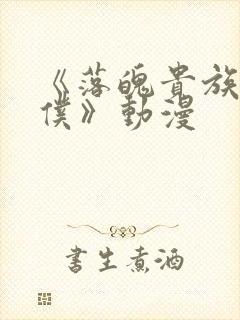 《落魄貴族
僕》動漫
書生煮酒